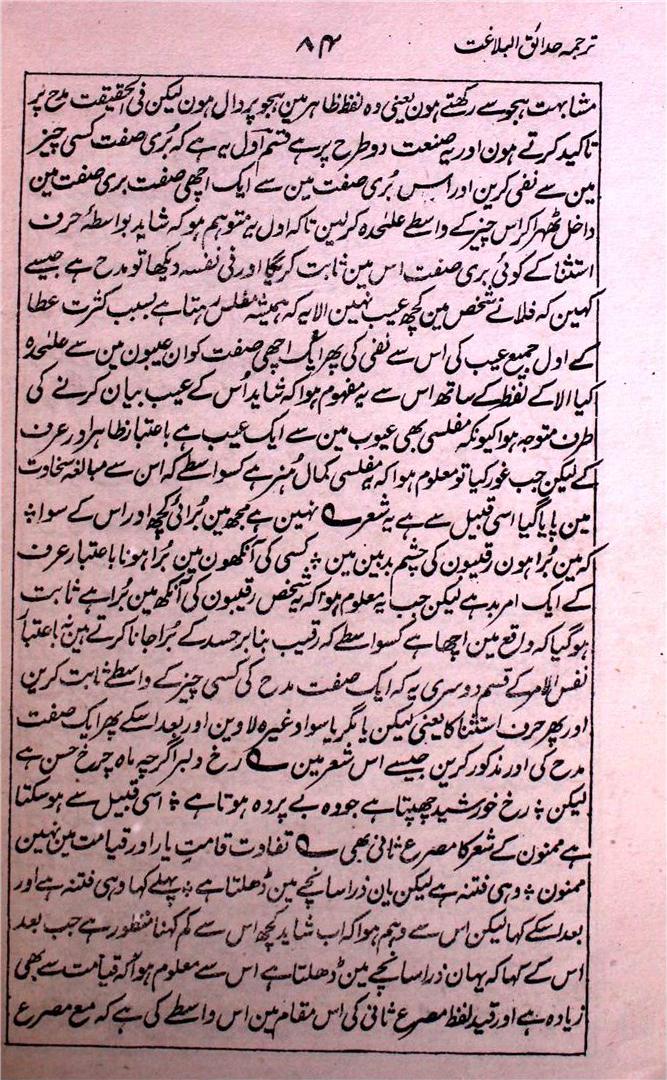 ترجمہ حدائق البلاغت ۸۴
مشابہت ہجو سے رکھتے ہون یعنی وہ لفظ ظاہر مین ہجو پر دال ہون لیکن فی الحقیقت مدح پر
تاکید کرتے ہون اور یہ صنعت دو طرح پر ہے قسم اول یہ ہے کہ بُری صفت کسی چیز
مین سے نفی کرین اور اس بُری صفت مین سے ایک اچھی صفت بری صفت مین
داخل ٹھہرا کر اس چیز کے واسطے علٰحدہ کر لین تاکہ اول یہ متوہم ہو کہ شاید بواسطۂ حرف
استثنا کے کوئی بری صفت اس مین ثابت کریگا اور فی نفسہ دیکھا تو مدح ہے جیسے
کہین کہ فلانے شخص مین کچھ عیب نہین الا یہ کہ ہمیشہ مفلس رہتا ہے بسبب کثرت عطا
کے اول جمیع عیب کی اس سے نفی کی پھر ایک اچھی صفت کو ان عیبون مین سے علٰحدہ
کیا الا کے لفظ کے ساتھ اس سے یہ مفہوم ہوا کہ شاید اُس کے عیب بیان کرنے کی
طرف متوجہ ہوا کیونکہ مفلسی بھی عیوب مین سے ایک عیب ہے باعتبار ظاہر اور عرف
کے لیکن جب غور کیا تو معلوم ہوا کہ یہ مفلسی کمال ہُنر ہے کسواسطے کہ اس سے مبالغہ سخاوت
مین پایا گیا اسی قبیل سے ہے یہ شعر ؎ نہین ہے مجھ مین بُرائی کچھ اور اس کے سوا ؞
کہ مین بُرا ہون رقیبون کی چشم بد بین مین ؞ کسی کی آنکھون مین بُرا ہونا باعتبار عرف
کے ایک امر بد ہے لیکن جب یہ معلوم ہوا کہ یہ شخص رقیبون کی آنکھ مین بُرا ہے ثابت
ہو گیا کہ واقع مین اچھا ہے کسواسطے کہ رقیب بنا بر حسد کے بُرا جانا کرتے ہین نہ باعتبار
نفس الامر کے قسم دوسری یہ کہ ایک صفت مدح کی کسی چیز کے واسطے ثابت کرین
اور پھر حرف استثنا کا یعنی لیکن یا مگر یا سوا وغیرہ لاوین اور بعد اسکے پھر ایک صفت
مدح کی اور مذکور کرین جیسے اس شعر مین ؎ رخ دلبر اگرچہ ماہ چرخ حسن ہے
لیکن ؞ رخ خورشید چھپتا ہے جو وہ بے پردہ ہوتا ہے ؞ اسی قبیل سے ہو سکتا
ہے ممنون کے شعر کا مصرع ثانی بھی ؎ تفاوت قامت یار اور قیامت مین نہین
ممنون ؞ وہی فتنہ ہے لیکن یان ذرا سانچے مین ڈھلتا ہے ؞ پہلے کہا وہی فتنہ ہے اور
بعد اسکے کہا لیکن اس سے وہم ہوا کہ اب شاید کچھ اس سے کم کہنا منظور ہے جب بعد
اس کے کہا کہ یہان ذرا سانچے مین ڈھلتا ہے اس سے معلوم ہوا کہ قیامت سے بھی
زیادہ ہے اور قید لفظ مصرع ثانی کی اس مقام مین اس واسطے کی ہے کہ مع مصرع